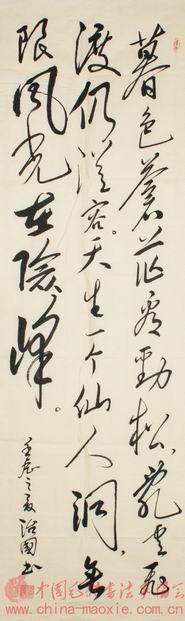 暮色苍茫看劲松，乱云飞
渡仍从容。天生一个仙人洞，无
限风光在险峰。
壬戌之夏治国书
www.china-maoxie.com.cn